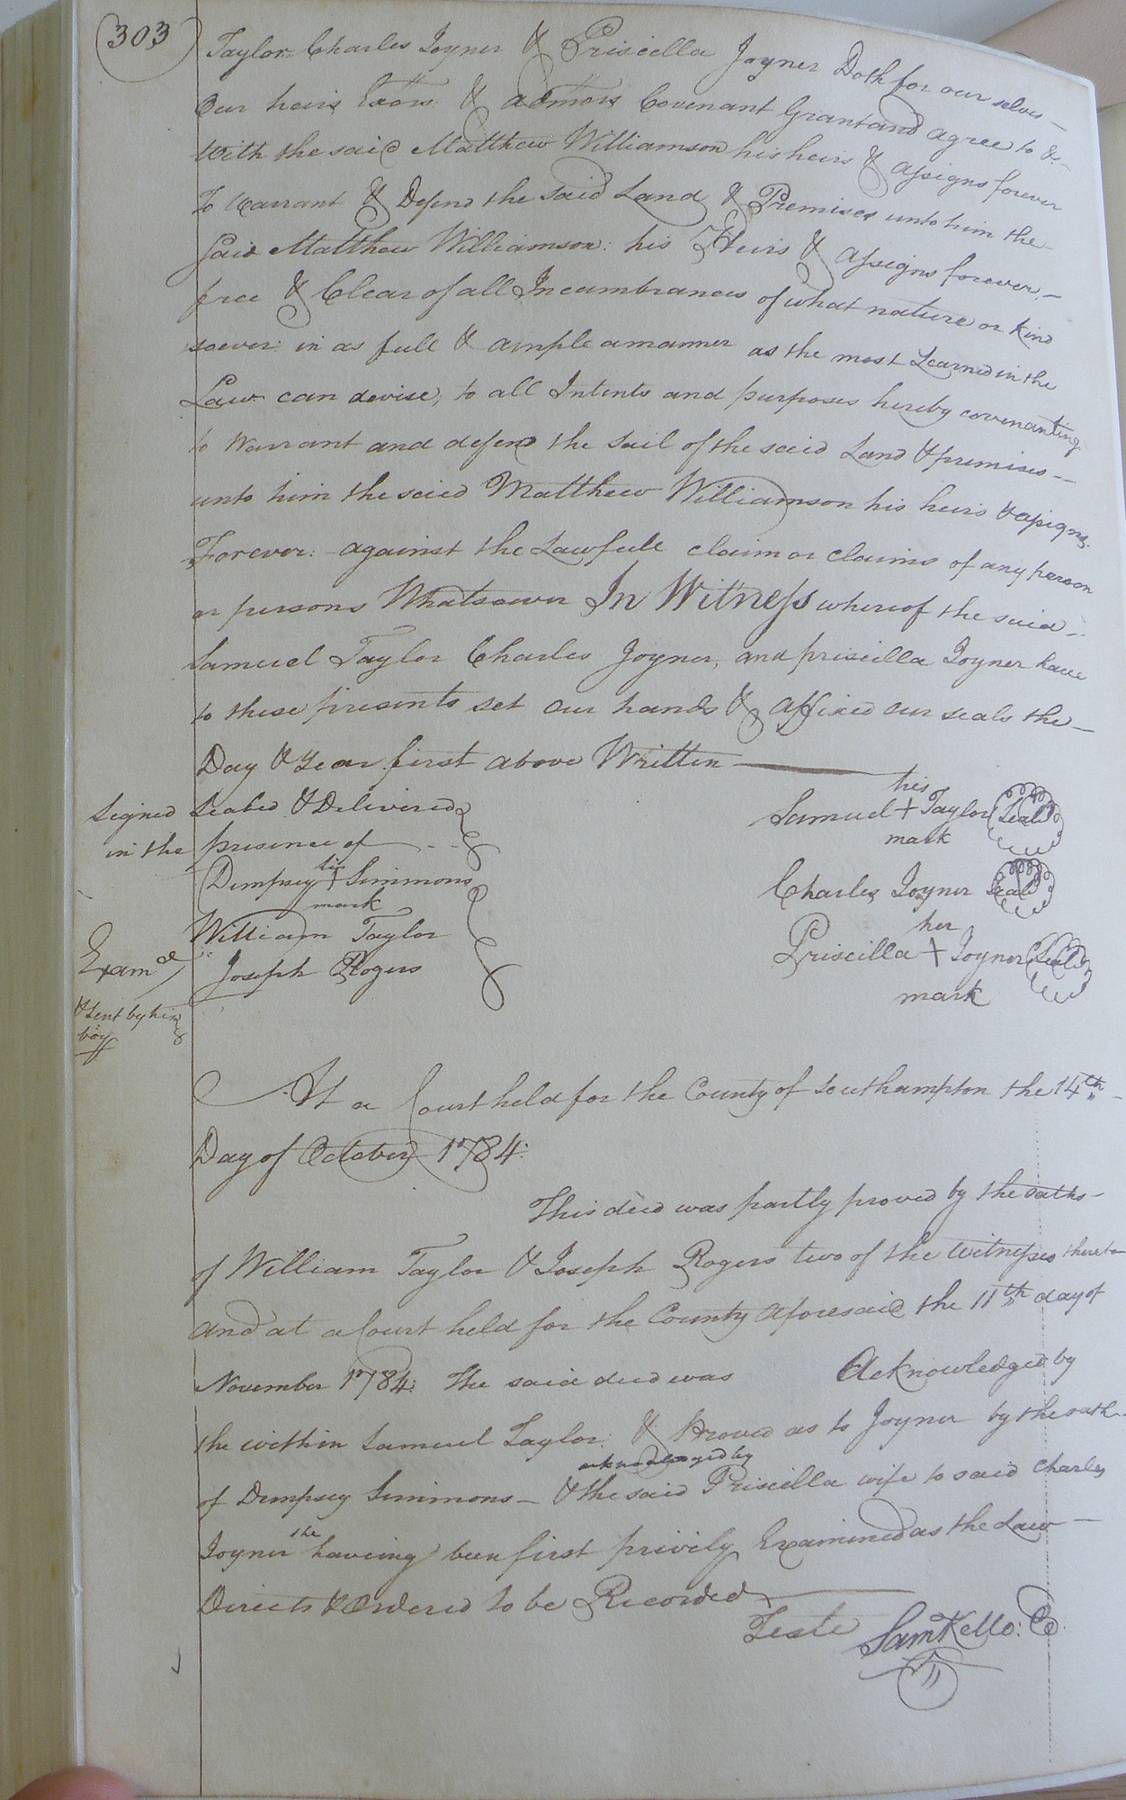 303
Taylor Charles Joyner & Priscilla Joyner Doth for our selves
Our heirs Exors & admors Covenant Grant and agree to &
With the said Matthew Williamson his heirs & assigns forever
To Warrant & Defend the said Land & Premises unto him the
said Matthew Williamson: his Heirs & assigns forever
free & Clear of all Incumbrances of what nature or kind
soever: in as full & ample a manner as the most Learned in the
Law can devise, to all Intents and purposes hereby covenanting
to Warrant and defend the Sail of the said Land & premises
unto him the said Matthew Williamson his heirs & assigns
Forever: against the Lawfull claim or claims of any person
or persons Whatsoever In Witness whereof the said
Samuel Taylor Charles Joyner, and priscilla Joyner have
to these presents set our hands & affixed our seals the
Day & Year first above Written
Signed Sealed & Delivered
in the presence of
Dempsey his + Simmons
mark
William Taylor
Joseph Rogers
his
Samuel + Taylor Seal
mark
Charles Joyner Seal
her
Priscilla + Joyner Seal
mark
Exam.d
& Sent by his
boy
At a Court held for the County of Southampton the 14th
Day of October 1784:
This deed was partly proved by the oaths
of William Taylor & Joseph Rogers two of the Witnesses thereto
and at a Court held for the County aforesaid the 11th day of
November 1784: The said deed was Acknowledged by
the within Samuel Taylor & Proved as to Joyner by the oath
of Dempsey Simmons & acknowledged by the said Priscilla wife to said Charles
Joyner she having been first privily Examined as the Law
Directs & Ordered to be Recorded
Teste Sam Kello: C.